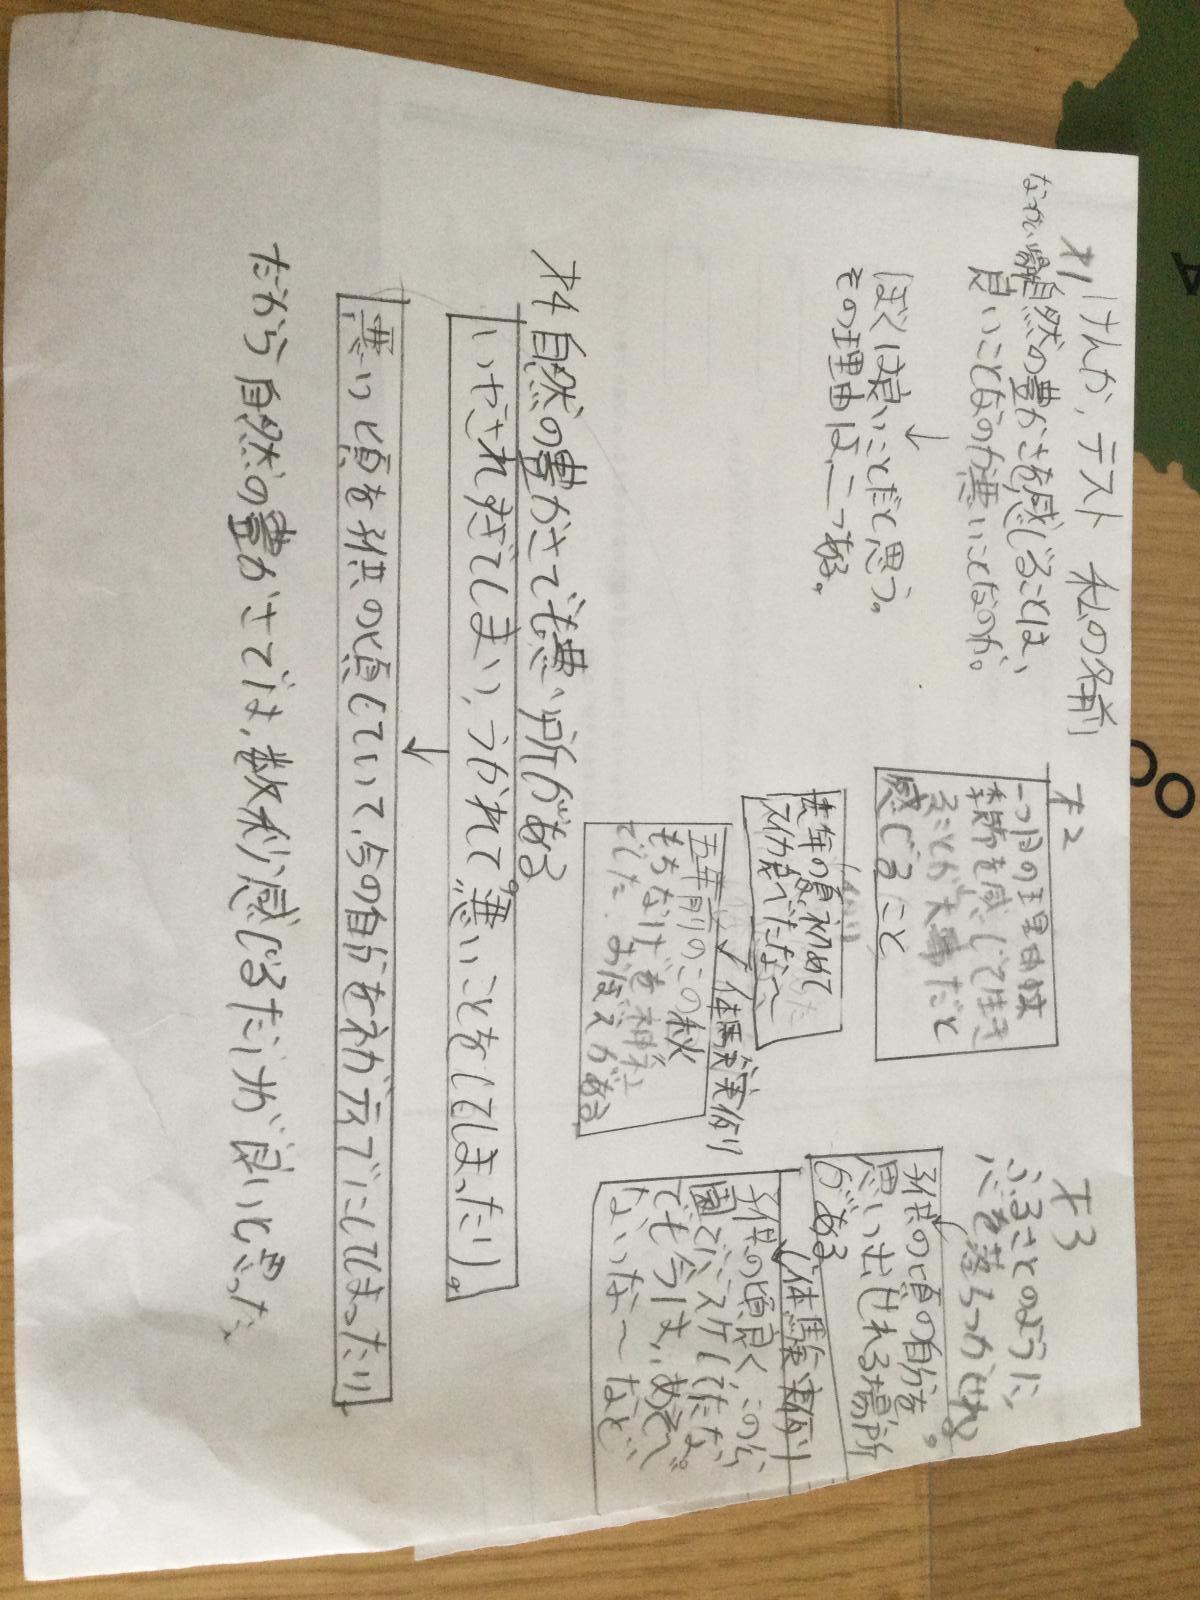 けんか、テスト 私の名前
才1
自然の豊かさを感じることは、
良いことなのか悪いことなのか。
ぼくは良いことだと思う。
その理由は、二つある。
才2
一つ目の理由は
季節を感じて生き
ることが大事だと
感じること
去年の夏初めて
スイカ食べたな〜
体験実例
五年前のこの秋
もちなげを神社
でした。おぼえがある。
才3
ふるさとのように、
心を落ちつかせれる。
子供の頃の自分を
思い出せれる場所
がある
体験実例
子供の頃良くこの公
園でバスケしてたな。
でも今は、あそべ
ないな〜など
才4 自然の豊かさでも悪い所がある。
いやされすぎてしまい、うかれて、悪いことをしてしまったり。
悪い頃を子供の頃していて、今の自分をネガティブにしてしまったり
だから自然の豊かさでは、数秒感じるだけが良いと思った。